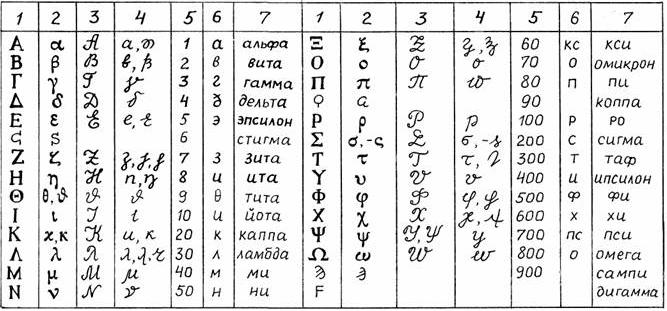 1 2 3 4 5 6 7 1 2 3 4 5 6 7
Α α 𝒜 α, 1 а альфа Ξ ξ 60 кс кси
Β β ℬ 2 в вита Ο ο 𝒪 ο 70 о омикрон
Γ γ 3 г гамма Π π 𝛱 80 п пи
Δ δ 𝒟 4 д дельта Ϙ 90 коппа
Ε ε ℰ e, 5 э эпсилон Ρ ρ 𝒫 p 100 р ро
Ϛ 6 стигма Σ σ,-ς 200 с сигма
Ζ ζ 7 з зита Τ τ 𝒯 τ, 300 т таф
Η η ℋ n, 8 и ита Υ υ 400 и ипсилон
Θ θ,ϑ ϑ ϑ 9 θ тита Φ φ 500 ф фи
Ι ι ι 10 и йота Χ χ 𝒳 600 х хи
Κ ϰ,κ 𝒦 20 к каппа Ψ ψ 700 пс пси
Λ λ 30 л ламбда Ω ω 800 о омега
Μ μ ℳ μ 40 м ми Ϡ 900 сампи
Ν ν 𝒩 50 н ни Ϝ дигамма